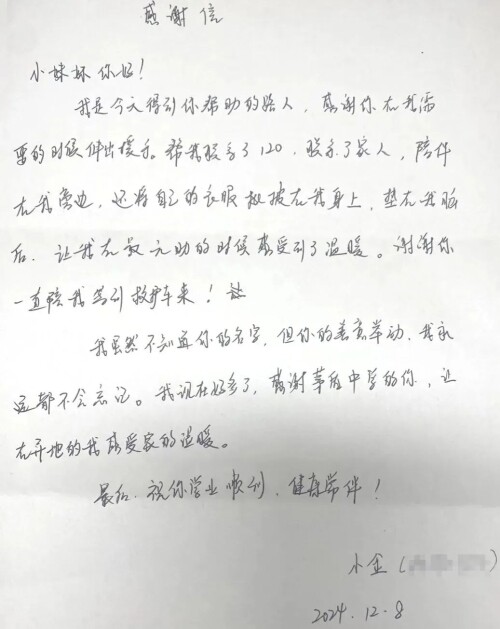 感谢信
小妹妹你好！
我是今天得到你帮助的路人，感谢你在我需
要的时候伸出援手。帮我联系了120，联系了家人，陪伴
在我旁边，还将自己的衣服披在我身上，垫在我脑
后，让我在最无助的时候感受到了温暖。谢谢你
一直陪我等到救护车来！
我虽然不知道你的名字，但你的善意举动，我永
远都不会忘记。我现在好多了，感谢中学的你，让
在异地的我感受家的温暖。
最后，祝你学业顺利，健康常伴！
小金（
2024.12.8